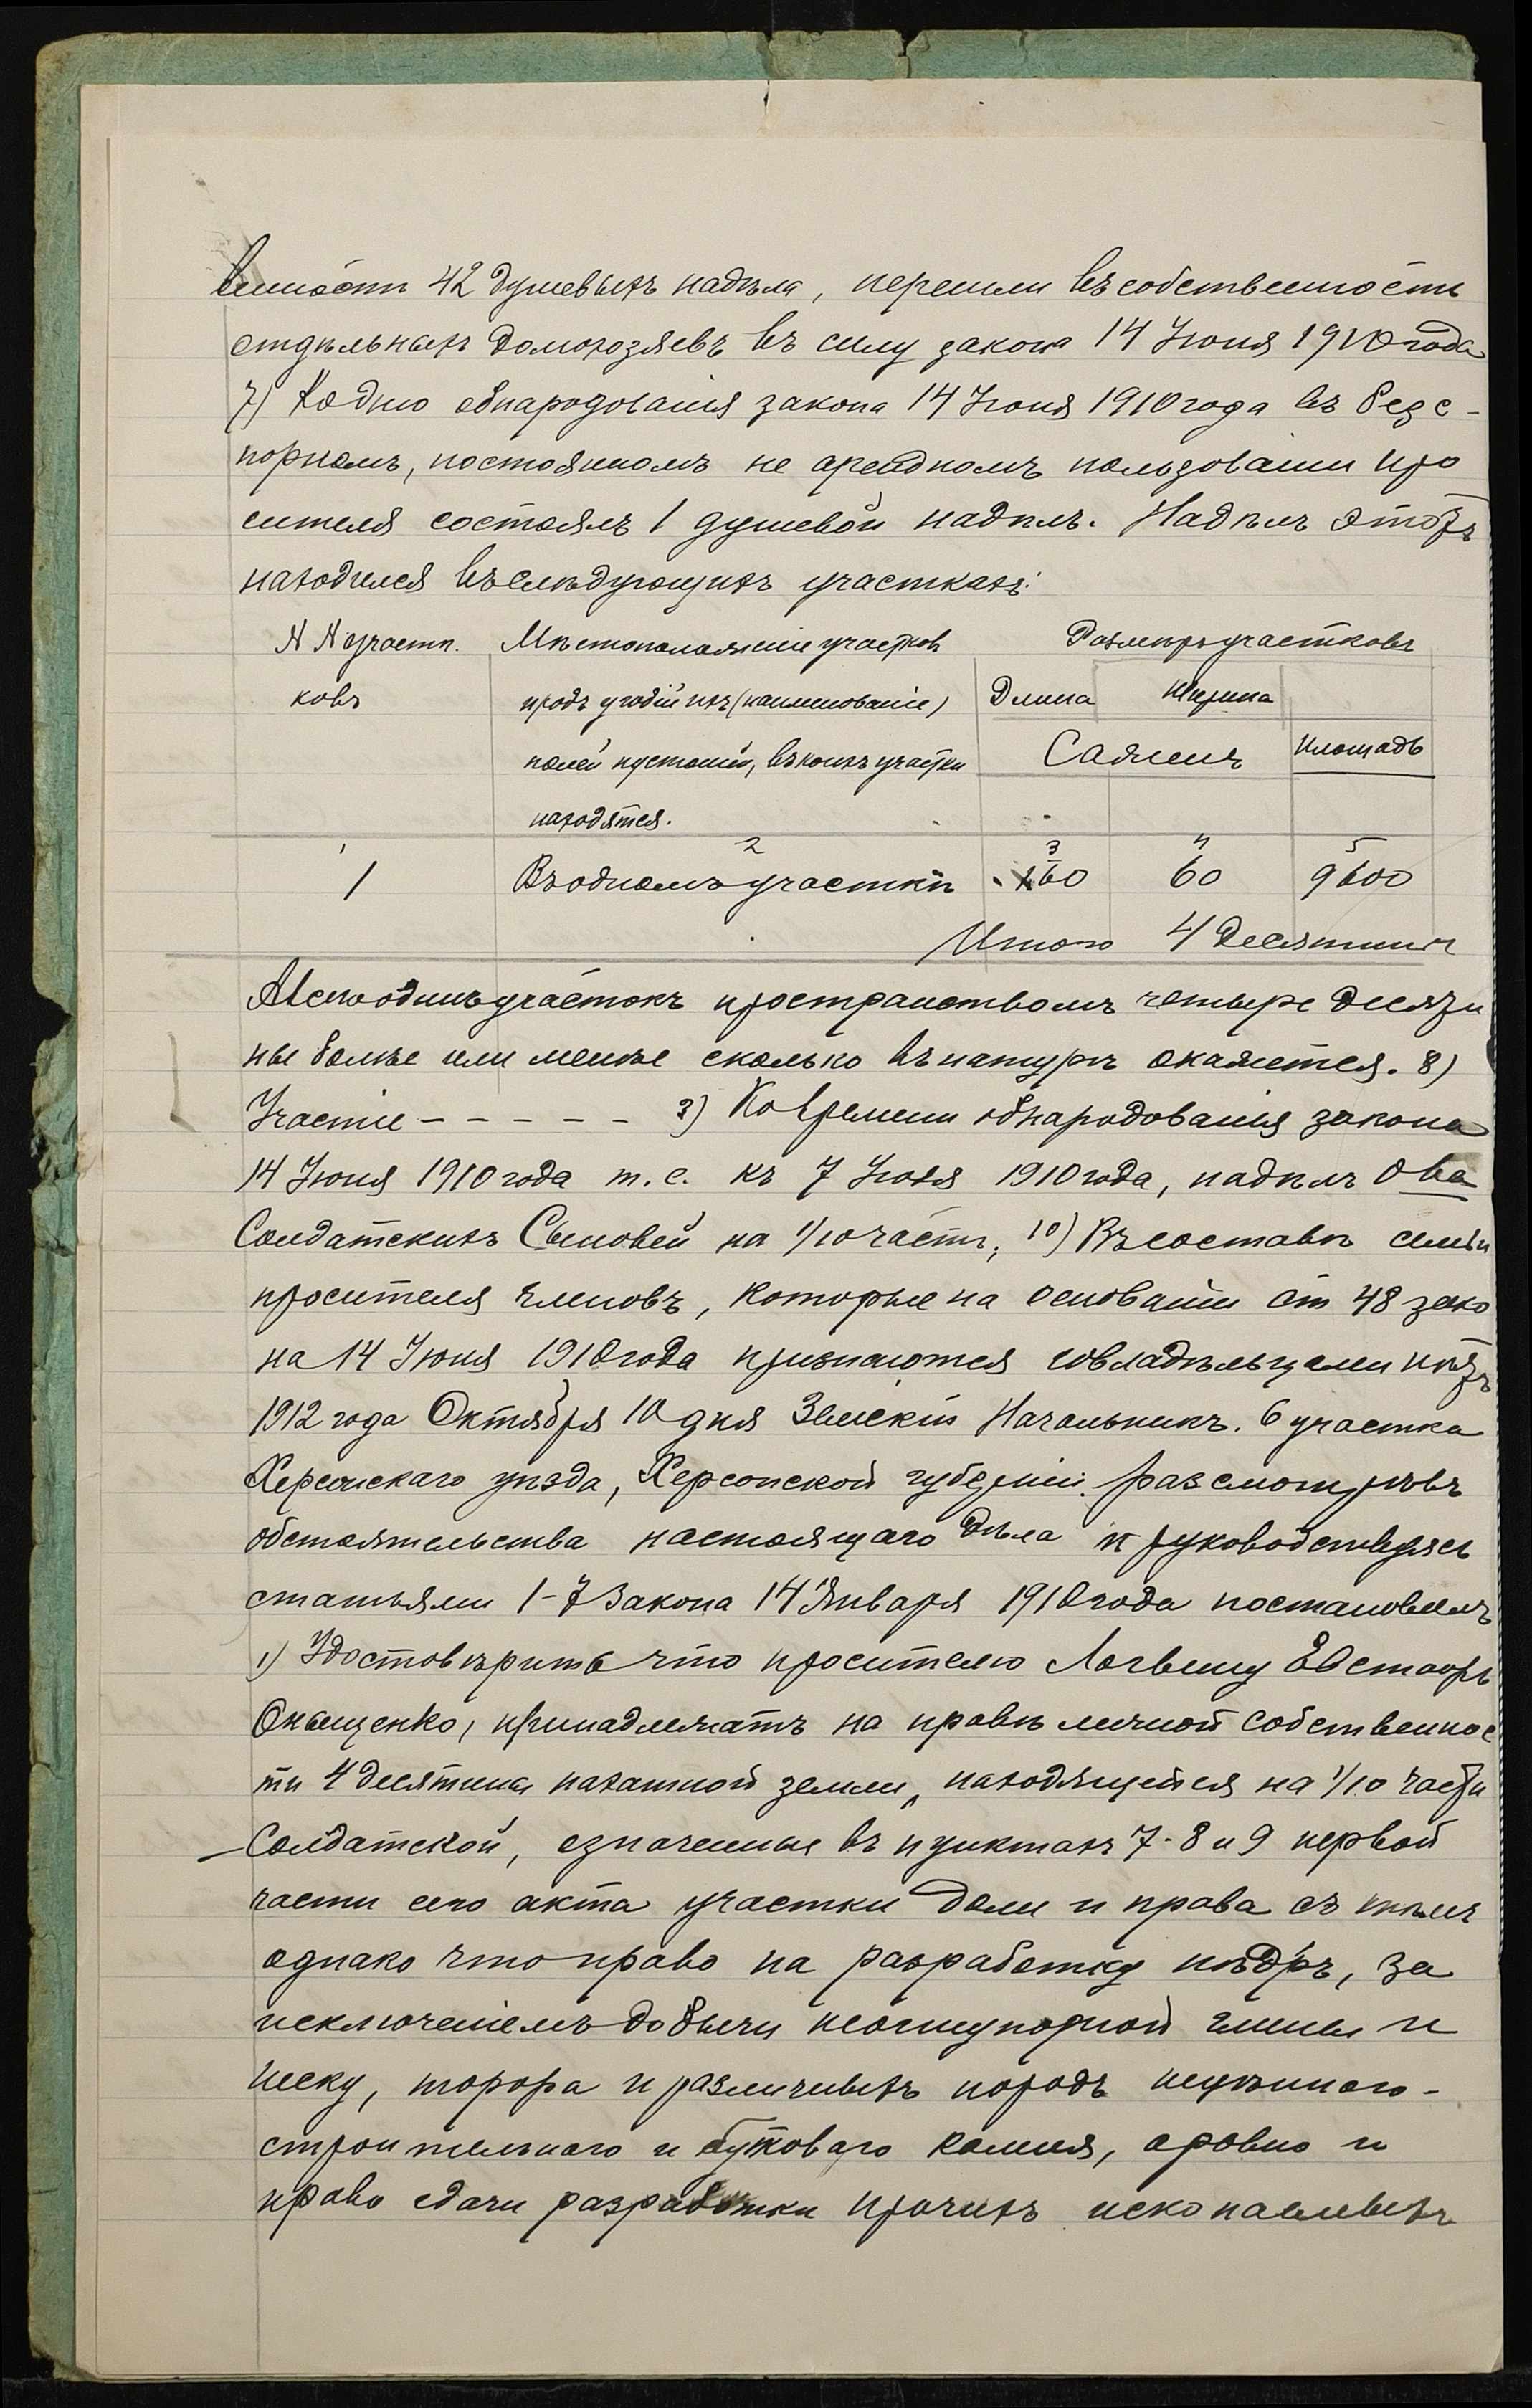 венности 42 душевыхъ надѣла, перешли въ собственность
отдѣльныхъ домохозяевъ въ силу закона 14 Іюня 1910 года
7) Ко дню обнародованія закона 14 Іюня 1910 года въ безс-
порномъ, постоянномъ не арендномъ пользованіи про
сителя состоялъ 1 душевой надѣлъ. Надѣлъ этотъ
находился въ слѣдующихъ участкахъ:
N N участ. Мѣстоположеніе участков Размѣръ участковъ
ковъ и родъ угодій ихъ (наименованіе) Длина Ширина
полей пустошей, въ коихъ участки Саженъ Площадь
находятся.
1 2 3 4 5
1 Въ одномъ участкѣ 160 60 9600
Итого 4 десятины
А всего одинъ участокъ пространствомъ четыре десяти
ны болѣе или менѣе сколько въ натурѣ окажется. 8)
Участіе - - - - - 9) Ко времени обнародованія закона
14 Іюня 1910 года т. е. къ 7 Іюля 1910 года, надѣлъ ова
Солдатскихъ Сыновей на 1/10 часть, 10) Въ составѣ семьи
просителя членовъ, которые на основаніи ст 48 зако
на 14 Іюня 1910 года признаются совладѣльцами нѣтъ
1912 года Октября 10 дня Земскій Начальникъ. 6 участка
Херсонскаго уѣзда, Херсонской губерніи. разсмотрѣвъ
обстоятельства настоящаго дѣла и руководствуясь
статьями 1-7 Закона 14 Января 1910 года постановилъ
1) Удостовѣрить что просителю Логвину Евстаф.
Онищенко, принадлежатъ на правѣ личной собственнос
ти 4 десятины пахатной земли, находящейся на 1/10 части
Солдатской, означенные въ пунктахъ 7-8 и 9 первой
части сего акта участки доли и права съ тѣмъ
однако что право на разработку нѣдръ, за
исключеніемъ добычи неогнупорной глины и
песку, торфа и различныхъ породъ нецѣннаго-
строительнаго и бутоваго камня, а ровно и
право сдачи разработки прочихъ ископаемыхъ